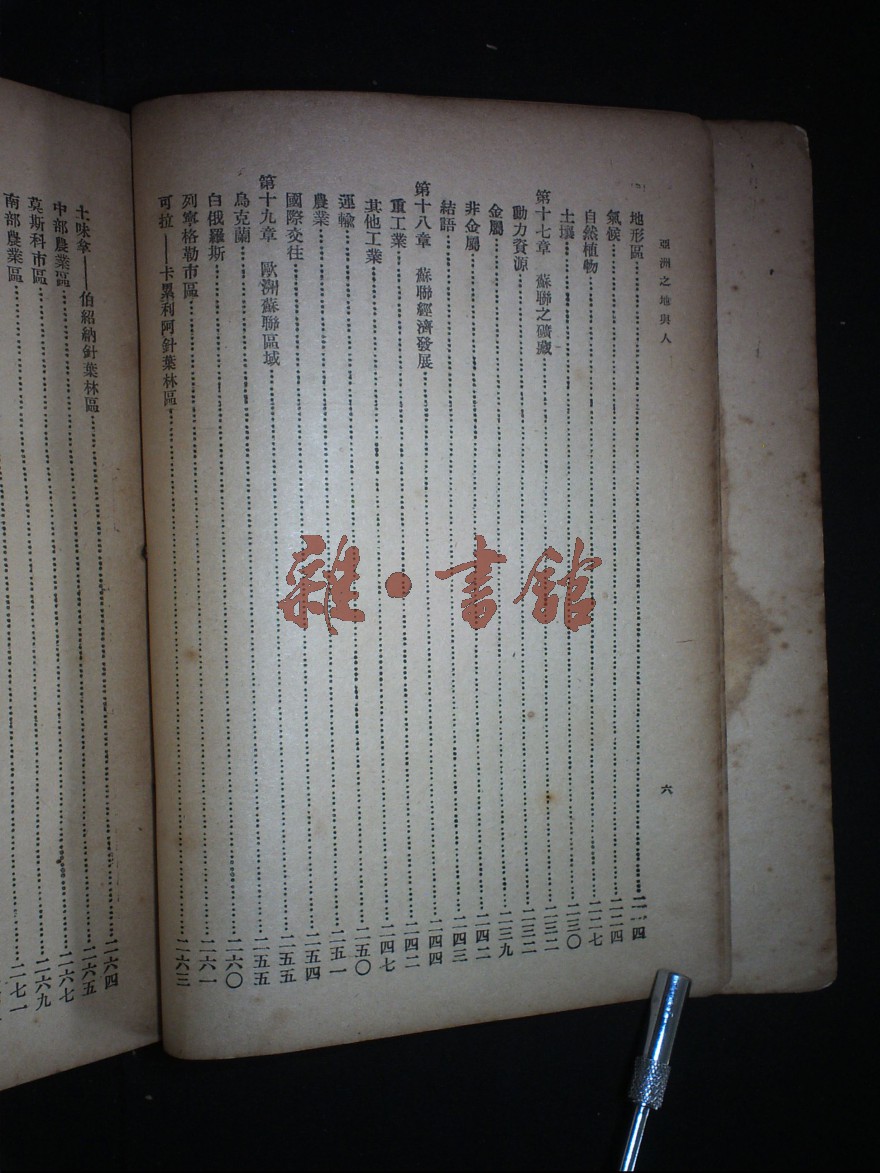 亞洲之地與人 六
地形區 二一四
氣候 二二四
自然植物 二二七
土壤 二三〇
第十七章 蘇聯之礦藏 二三二
動力資源 二三二
金屬 二三九
非金屬 二四二
結語 二四三
第十八章 蘇聯經濟發展 二四四
重工業 二四二
其他工業 二四七
運輸 二五〇
農業 二五一
國際交往 二五四
第十九章 歐洲蘇聯區域 二五五
烏克蘭 二五五
白俄羅斯 二六〇
列寧格勒市區 二六一
可拉——卡累利阿針葉林區 二六三
土味拿——伯紹納針葉林區 二六四
中部農業區 二六五
莫斯科市區 二六七
南部農業區 二六九
二七一
雜·書館